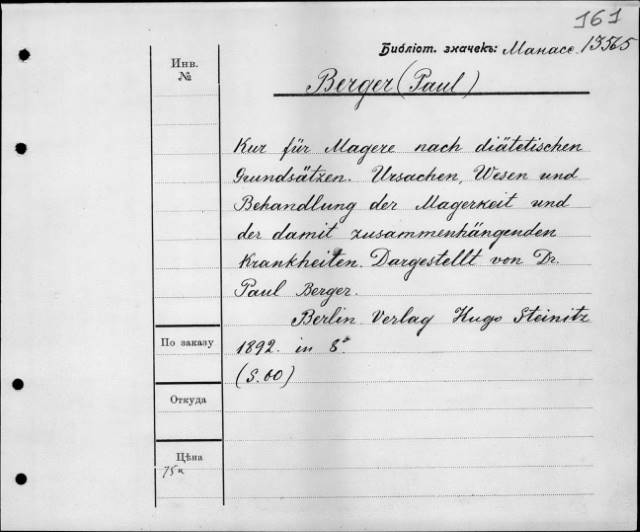 161
Библіот. значекъ: Манасс. 13565
Инв.
№
Berger (Paul)
Kur für Magere nach diätetischen
Grundsätzen. Ursachen, Wesen und
Behandlung der Magerkeit und
der damit zusammenhängenden
Krankheiten. Dargestellt von Dr.
Paul Berger.
Berlin Verlag Hugo Steinitz
По заказу
1892. in 8°.
(S. 60)
Откуда
Цѣна
75к